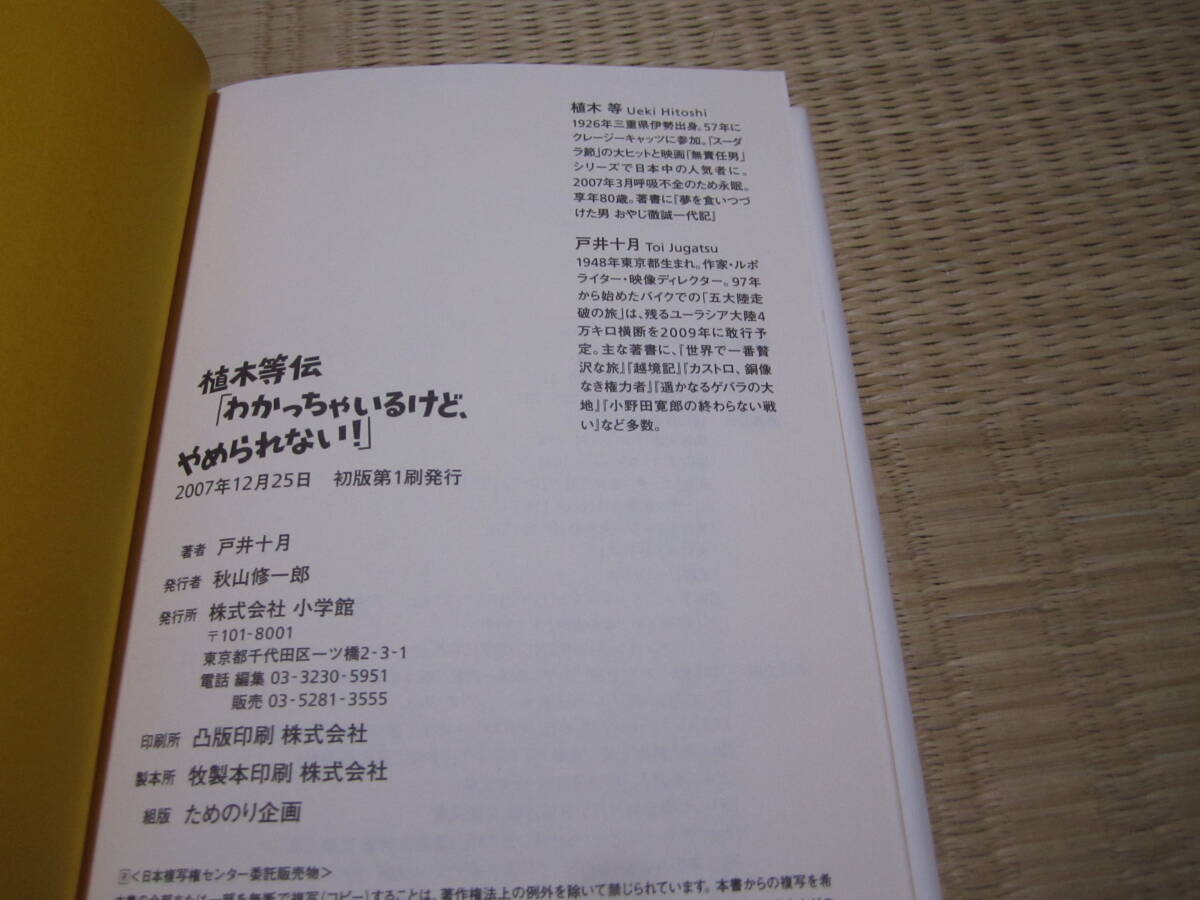 植木 等 Ueki Hitoshi
1926年三重県伊勢出身。57年に
クレージーキャッツに参加。『スーダ
ラ節』の大ヒットと映画「無責任男」
シリーズで日本中の人気者に。
2007年3月呼吸不全のため永眠。
享年80歳。著書に『夢を食いつづ
けた男 おやじ徹誠一代記』
戸井十月 Toi Jugatsu
1948年東京都生まれ。作家・ルポ
ライター・映像ディレクター。97年
から始めたバイクでの「五大陸走
破の旅」は、残るユーラシア大陸4
万キロ横断を2009年に敢行予
定。主な著書に、『世界で一番贅
沢な旅』『越境記』『カストロ、銅像
なき権力者』『遥かなるゲバラの大
地』『小野田寛郎の終わらない戦
い』など多数。
植木等伝
「わかっちゃいるけど、
やめられない!」
2007年12月25日 初版第1刷発行
著者 戸井十月
発行者 秋山修一郎
発行所 株式会社 小学館
〒101-8001
東京都千代田区一ツ橋2-3-1
電話 編集 03-3230-5951
販売 03-5281-3555
印刷所 凸版印刷 株式会社
製本所 牧製本印刷 株式会社
組版 ためのり企画
<日本複写権センター委託販売物>
本書の全部または一部を無断で複写(コピー)することは、著作権法上の例外を除いて禁じられています。本書からの複写を希